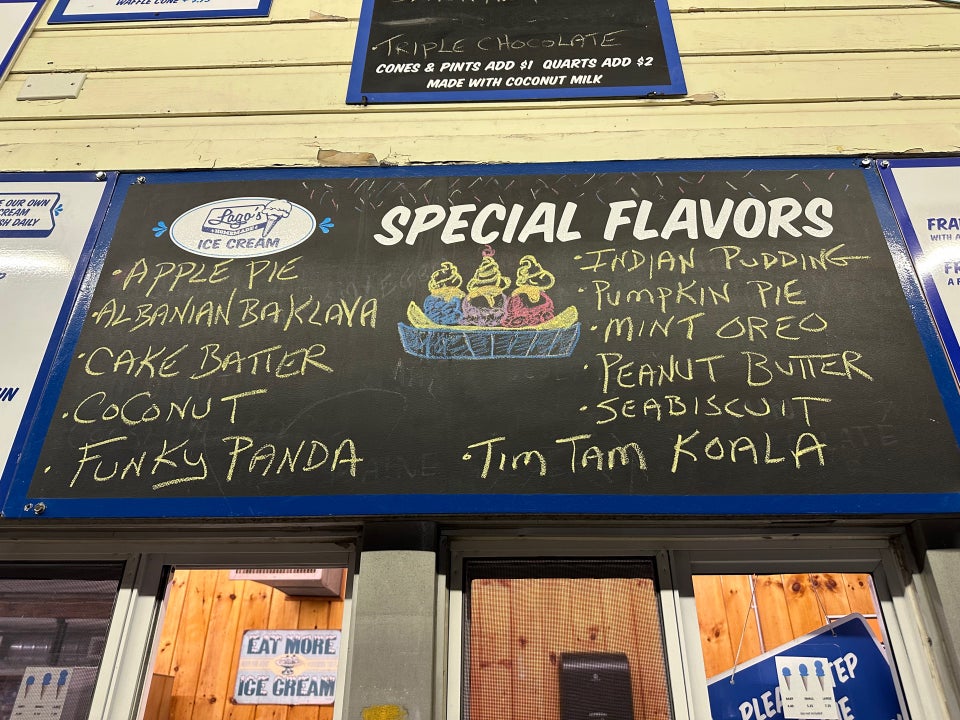 WAFFLE CONE
TRIPLE CHOCOLATE
CONES & PINTS ADD $1 QUARTS ADD $2
MADE WITH COCONUT MILK
OUR OWN
CREAM
DAILY
Lago's
HOMEMADE
ICE CREAM
SPECIAL FLAVORS
·APPLE PIE
·ALBANIAN BAKLAVA
·CAKE BATTER
·COCONUT
·FUNKY PANDA
·INDIAN PUDDING
·PUMPKIN PIE
·MINT OREO
·PEANUT BUTTER
·SEABISCUIT
·TIM TAM KOALA
FRA
WITH A
FR
A F
EAT MORE
ICE CREAM
PLEA TEP